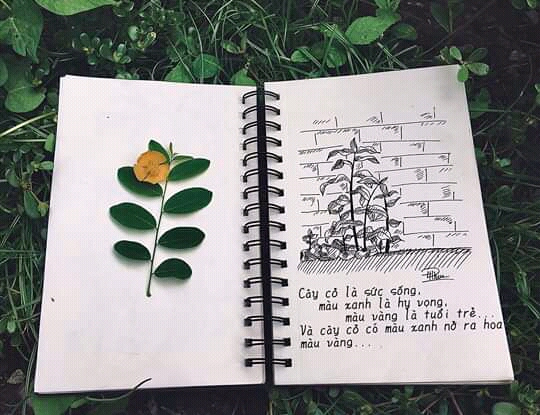 Cây cỏ là sức sống,
màu xanh là hy vọng,
màu vàng là tuổi trẻ...
Và cây cỏ có màu xanh nở ra hoa
màu vàng...